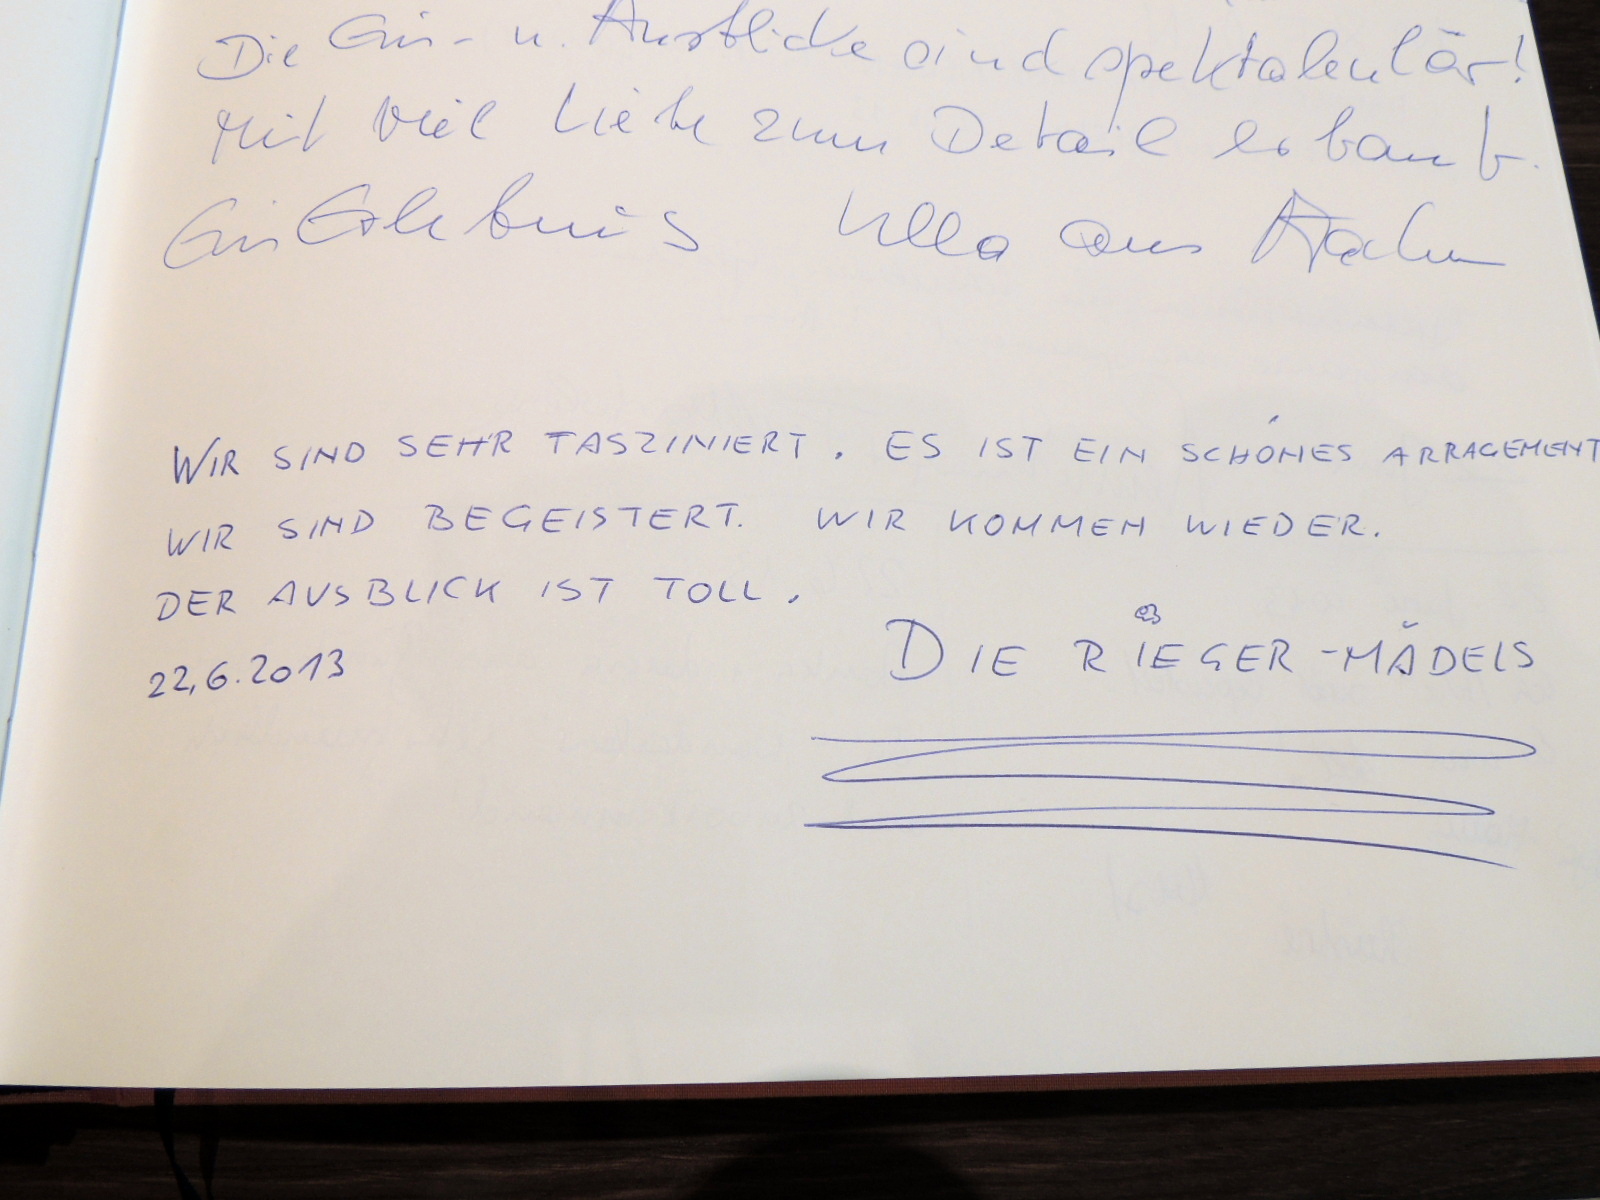 Die Ein- u. Ausblicke sind spektakulär!
Mit viel Liebe zum Detail erbaut.
Ein Erlebnis Ulla aus Aachen
WIR SIND SEHR FASZINIERT. ES IST EIN SCHÖNES ARRAGEMENT
WIR SIND BEGEISTERT. WIR KOMMEN WIEDER.
DER AUSBLICK IST TOLL.
22.6.2013
DIE RIEGER-MÄDELS